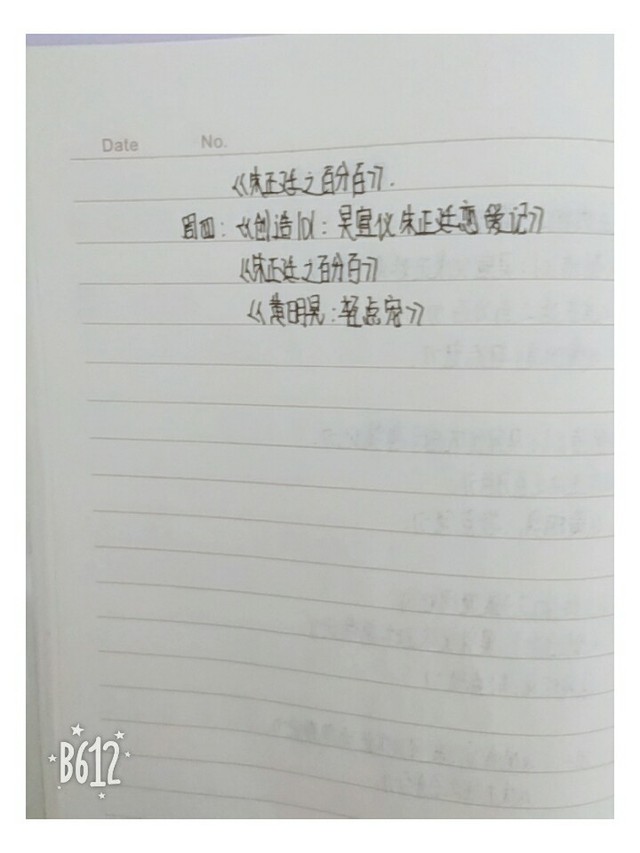 Date No.
《朱正廷之百分百》.
周四：《创造101：吴宣仪朱正廷恋爱记》
《朱正廷之百分百》
《黄明昊：轻点宠》
B612